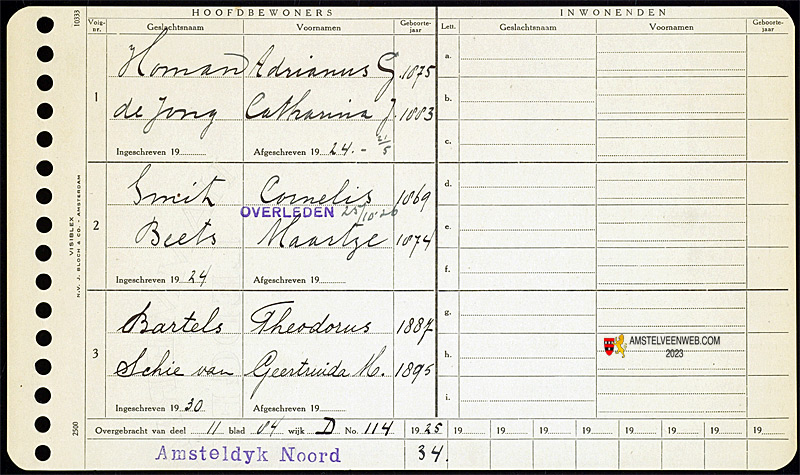 HOOFDBEWONERS INWONENDEN
Volg-nr. Geslachtsnaam Voornamen Geboorte-jaar Lett. Geslachtsnaam Voornamen Geboorte-jaar
10333
1
Homan Adrianus G. 1875
de Jong Catharina J. 1883
Ingeschreven 19 Afgeschreven 19 24. - 2/5
2
Smit Cornelis 1869
OVERLEDEN 25/10-26
Beets Maartje 1874
Ingeschreven 19 24 Afgeschreven 19
3
Bartels Theodorus 1887
Schie van Geertruida M. 1895
Ingeschreven 19 30 Afgeschreven 19
a.
b.
c.
d.
e.
f.
g.
h.
i.
AMSTELVEENWEB.COM
2023
VISIBLEX
N.V. J. BLOCH & CO. - AMSTERDAM
2500
Overgebracht van deel 11 blad 04 wijk D No. 114 19 25 19 19 19 19 19 19 19
Amsteldyk Noord 34.